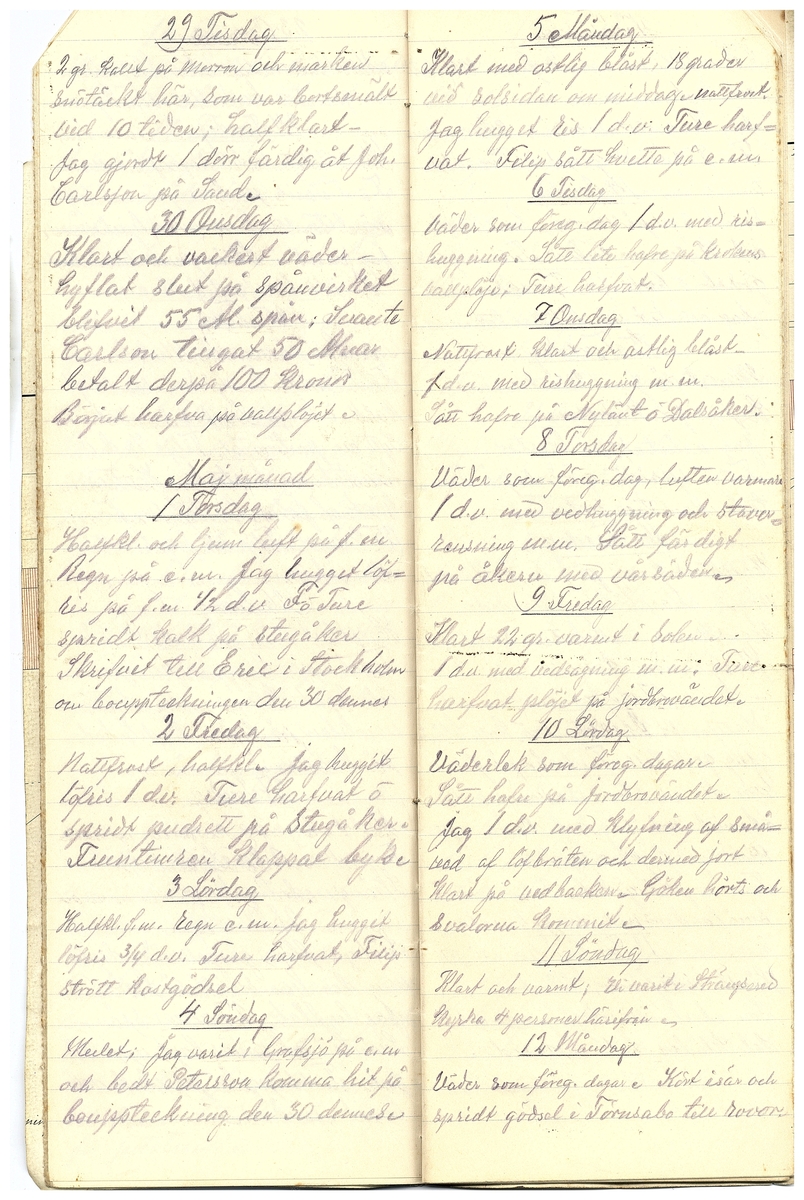 29 Tisdag
2 gr. kallt på morron och marken
snötäckt här, som var bortsmält
ved 10 tiden; halfklart –
Jag gjordt 1 dörr färdig åt Joh.
Carlsson på Sand.
30 Onsdag
Klart och vackert väder –
hyflat slut på spånvirket
blifvit 55 M. spån; Svante
Carlson tingat 50 M
betalt derpå 100 Kronor
Börjat harfva på vallplöjet
Maj månad
1 Torsdag
Halfkl. och ljum luft på f.m.
Regn på e.m. Jag hugget löf=
ris på f.m. 1/2 d.v. Fö Ture
spridt kalk på Stugåker
Skrifvit till Eric i Stockholm
om bouppteckningen den 30 dennes
2 Fredag
Nattfrost, halfkl. Jag huggit
löfris 1 d.v. Ture harfvat ö
spridt pudrett på Stugåker.
Fruntimren klappat byk
3 Lördag
Halfkl. f.m. regn e.m. Jag huggit
löfris 3/4 d.v. Ture harfvat, Filip
strött kostgödsel
4 Söndag
Mulet; Jag varit i Grafsjö på e.m
och bedt Petersson komma hit på
bouppteckning den 30 dennes
5 Måndag
Klart med ostlig blåst, 18 grader
ved solsidan om middag. nattfrost.
Jag hugget ris 1 d.v. Ture harf=
vat. Filip sått hvette på e.m
6 Tisdag
Väder som föreg. dag 1 d.v. med ris=
huggning. Såte lite hafre på
vallplöje; Ture harfvat.
7 Onsdag
Nattfrost klart och ostlig blåst –
1 d.v. med rishuggning m.m.
Sått hafre på Nylänt ö Dalsåker.
8 Torsdag
Väder som föreg. dag, luften varmare
1 d.v. med vedhuggning och staver=
rensning m.m. Sått färdigt
på åkern med vårsäden
9 Fredag
Klart 22 gr. varmt i Solen
1 d.v. med vedsågning m.m. Ture
harfvat plöjet på jordbrovändet
10 Lördag
Väderlek som föreg. dagar
Sått hafre på jordbrovändet
Jag 1 d.v. med klyfning af små=
ved af löfbråten och dermed jort
klart på vedbacken. Göken hörts och
Svalorna kommit
11 Söndag
Klart och varmt; Vi varit i Strängsered
kyrka 4 personer härifrån
12 Måndag
Väder som föreg. dagar. Kört isär och
spridt gödsel i Törnsabo till rovor